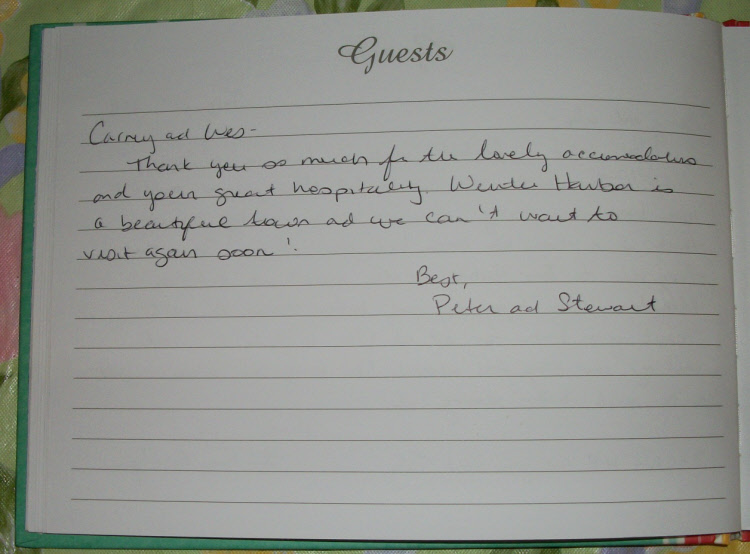 Guests
Carney ad Wes-
Thank you so much for the lovely accomodations
and your great hospitality. Winter Harbor is
a beautiful town ad we can't wait to
visit again soon!
Best,
Peter ad Stewart